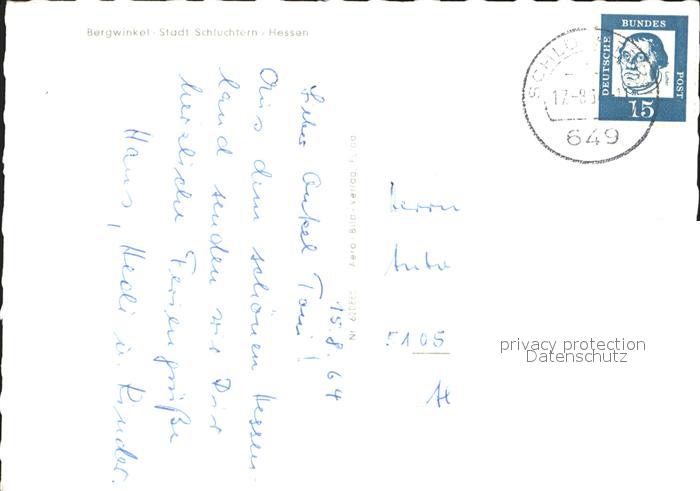 Bergwinkel - Stadt Schlüchtern / Hessen
15.8.64
Lieber Onkel Toni!
Aus dem schönen Hessen-
land senden wir Dir
herzliche Feriengrüße
Hans, Hedi u. Kinder.
Nr.
Aero-Bild-Verlag, Fulda
DEUTSCHE
BUNDES
POST
15
17.-8.6
649
Herrn
5105
privacy protection
Datenschutz